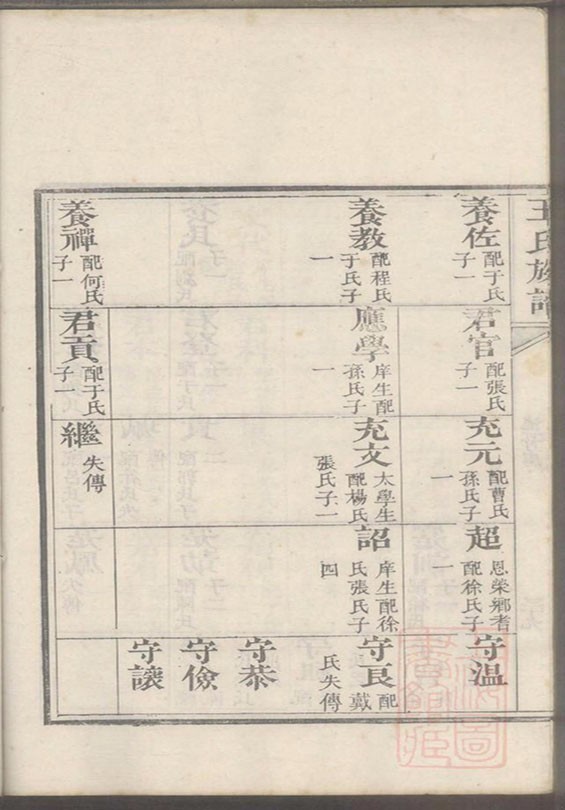 王氏族譜
養佐
配于氏
子一
君官
配張氏
子一
充元
配曹氏
孫氏子
一
超
恩榮鄉耆
配徐氏子
一
守溫
養教
配程氏
于氏子
一
應學
庠生配
孫氏子
一
充文
太學生
配楊氏
張氏子一
詔
庠生配徐
氏張氏子
四
守良
配戴
氏失傳
守恭
守儉
守讓
養禪
配何氏
子一
君貢
配于氏
子一
繼
失傳